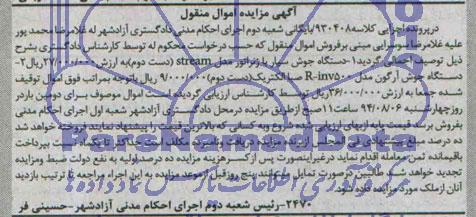 آگهی مزایده اموال منقول
در پرونده اجرایی کلاسه ۹۳۰۴۰۸ بایگانی شعبه دوم اجرای احکام مدنی دادگستری آزادشهر له غلامرضا محمد پور
علیه غلامرضا سوسرایی مبنی بر فروش اموال منقول که حسب درخواست محکوم له توسط کارشناس دادگستری بشرح
ذیل توصیف اجمالی گردید ۱-دستگاه جوش سیار با ژنراتور مدل stream (دست دوم) به ارزش ۲۷/۰۰۰/۰۰۰ ریال ۲-
دستگاه جوش آرگون مدل R-inv۵۰۰ صبا الکتریک (دست دوم) ۹/۰۰۰/۰۰۰ ریال باتوجه بمراتب فوق اموال توقیف
شده جمعا به ارزش ۳۶/۰۰۰/۰۰۰ ریال توسط کارشناس ارزیابی گردیده است اموال موصوف برای دومین بار در
روز چهارشنبه ۹۴/۰۸/۰۶ ساعت ۱۱ صبح از طریق مزایده در محل دادگستری آزادشهر شعبه اول اجرای احکام مدنی
بفروش برسد قیمت پایه از بهای ارزیابی شده شروع و به کسانی که بالاترین قیمت را پیشنهاد نمایند فروخته خواهد شد
ده درصد مبلغ پیشنهادی فی المجلس از برنده مزایده دریافت و نامبرده مکلف است حداکثر تا یکماه نسبت به پرداخت
باقیمانده ثمن معامله اقدام نماید در غیر اینصورت پس از کسر هزینه مزایده ده درصد اولیه به نفع دولت ضبط و مزایده
تجدید خواهد شد طالبین در صورت تمایل می توانند پنج روز قبل از موعد مزایده به این اجراء مراجعه تا ترتیب بازدید
آنان از ملک مورد مزایده داده شود.
۲۴۷۰-رئیس شعبه دوم اجرای احکام مدنی آزادشهر-حسینی فر